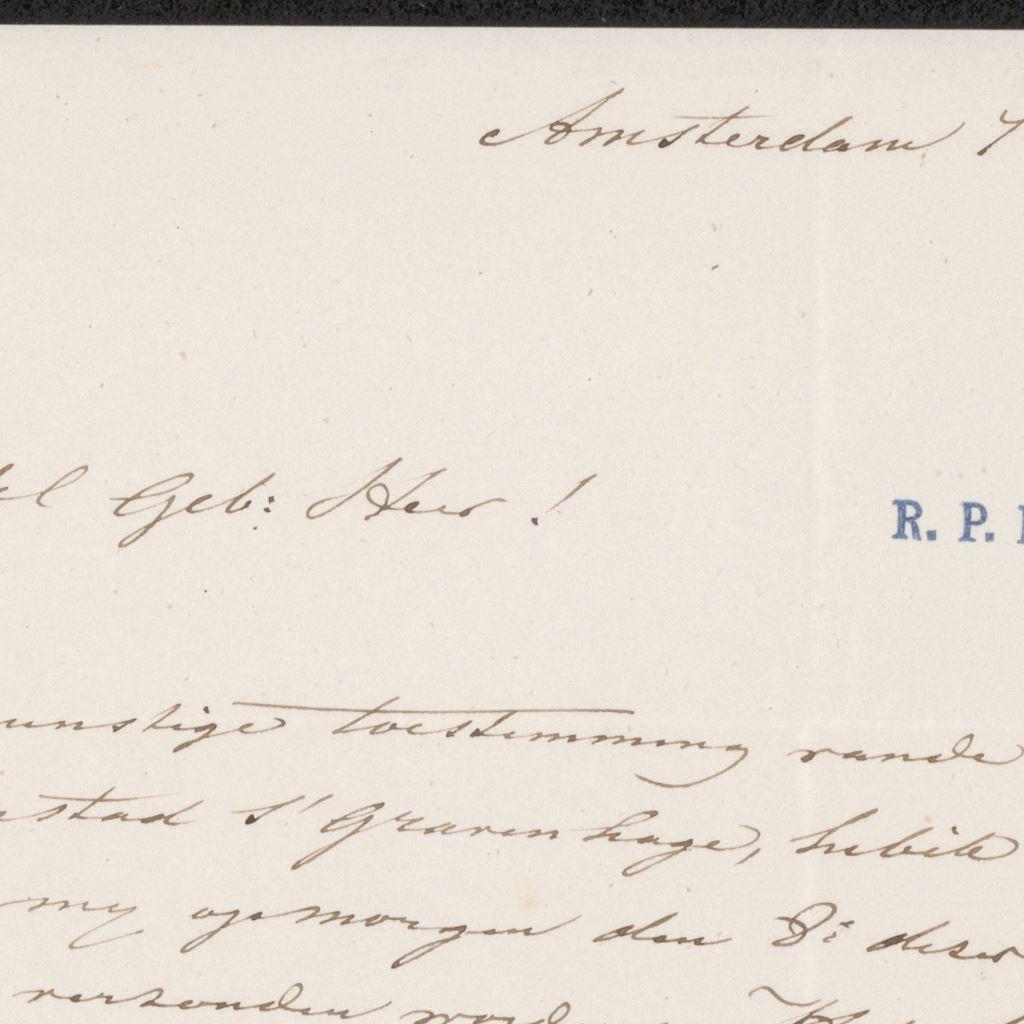 Amsterdam 7
Geb: Heer !
R. P.
unstige toestemming vande
stad s' Gravenhage, heb ik
my op morgen den 8: deser
verzonden worden